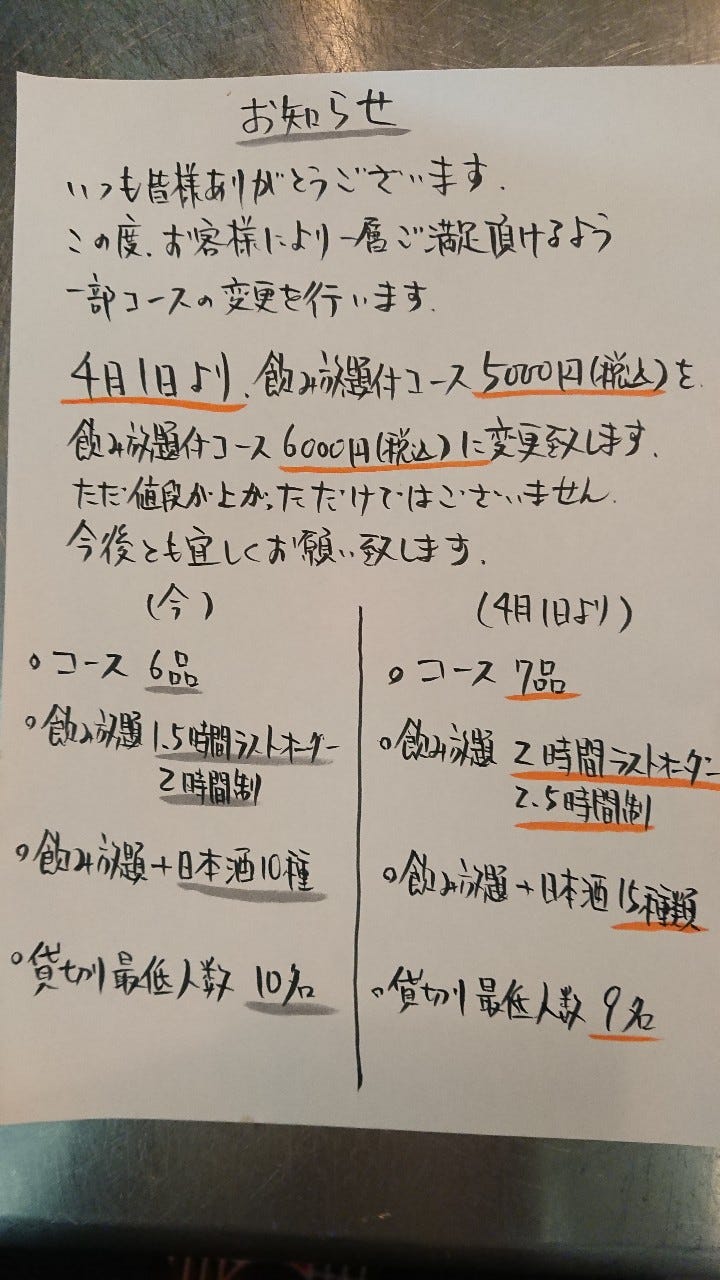 お知らせ
いつも皆様ありがとうございます.
この度、お客様により一層ご満足頂けるよう
一部コースの変更を行います.
4月1日より、飲み放題付コース5000円(税込)を
飲み放題付コース6000円(税込)に変更致します.
ただ値段が上がっただけではございません.
今後とも宜しくお願い致します.
(今)
○コース 6品
○飲み放題 1.5時間ラストオーダー
2時間制
○飲み放題+日本酒10種
○貸切り最低人数 10名
(4月1日より)
○コース 7品
○飲み放題 2時間ラストオーダー
2.5時間制
○飲み放題+日本酒15種類
○貸切り最低人数 9名